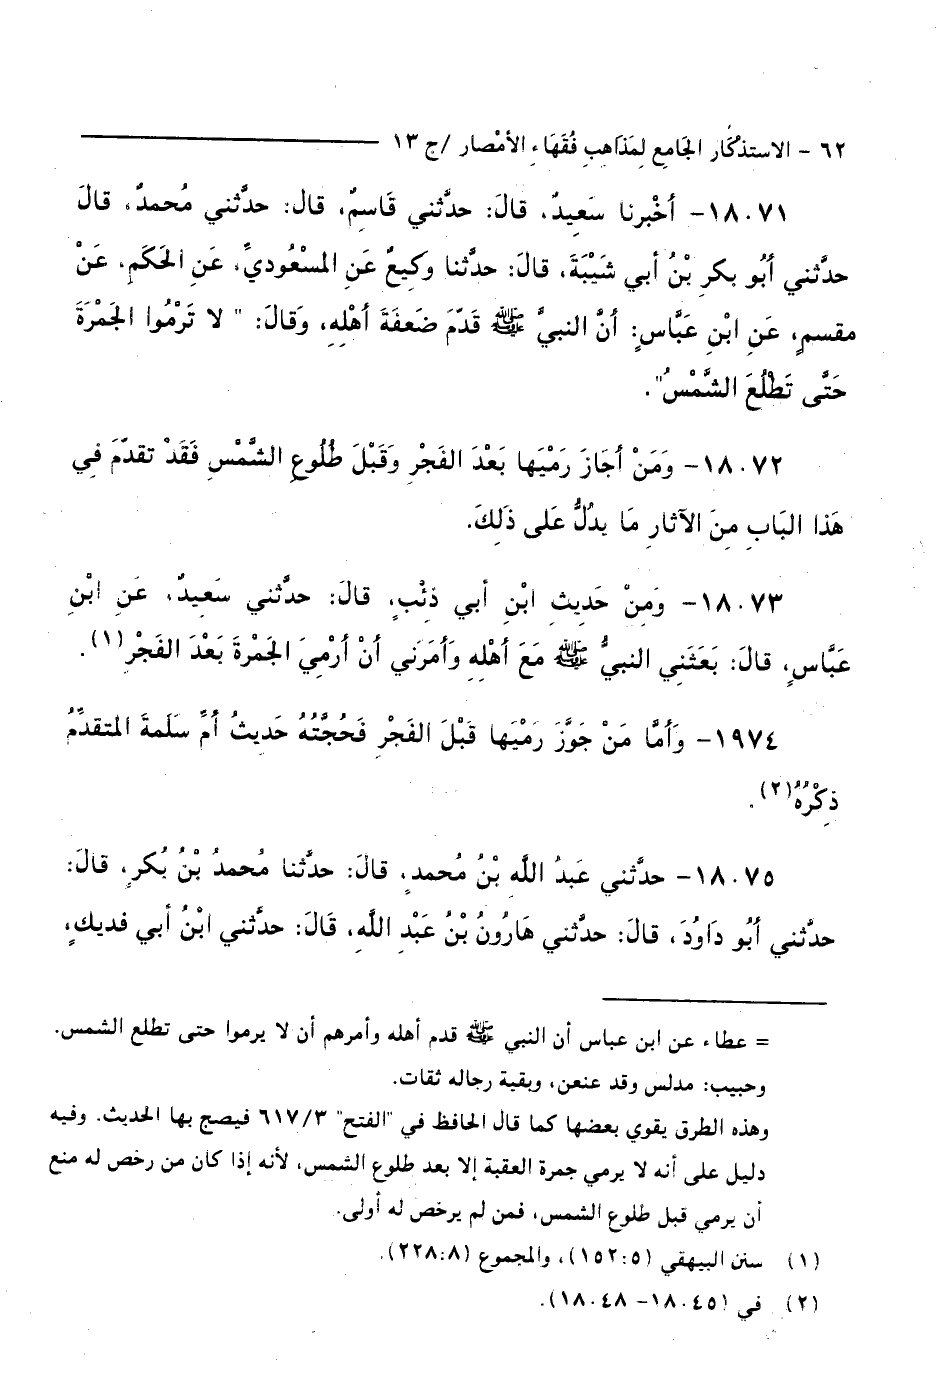 ٦٢ - الاستذْكَار الجَامِع لِمَذَاهِبِ فُقَهَاءِ الأمْصار /ج ١٣
١٨٠٧١- أخْبرنا سَعِيدٌ، قالَ: حدَّثني قَاسِمٌ، قال: حدَّثني مُحمدٌ، قالَ
حدَّثني أبُو بكرِ بْنُ أبي شَيْبَةَ، قالَ: حدَّثنا وكيعٌ عَنِ المسْعُوديِّ، عَنِ الحَكَمِ، عَنْ
مقسمٍ، عَنِ ابْنِ عَبَّاسٍ: أنَّ النبيَّ ﷺ قَدَّمَ ضَعفَةَ أهْلِهِ، وَقالَ: " لا تَرْمُوا الجَمْرَةَ
حَتَّى تَطْلُعَ الشَّمْسُ".
١٨٠٧٢- وَمَنْ أجَازَ رَمْيَها بَعْدَ الفَجْرِ وَقَبْلَ طُلُوعِ الشَّمْسِ فَقَدْ تقدَّمَ في
هَذا البَابِ مِنَ الآثارِ مَا يدُلُّ عَلى ذَلِكَ.
١٨٠٧٣- وَمِنْ حَدِيثِ ابْنِ أبي ذئْبٍ، قالَ: حدَّثني سَعِيدٌ، عَنِ ابْنِ
عَبَّاسٍ، قالَ: بَعَثَنِي النبيُّ ﷺ مَعَ أهْلِهِ وَأمَرَنِي أنْ أرْمِيَ الجَمْرةَ بَعْدَ الفَجْرِ(١).
١٩٧٤- وَأمَّا مَنْ جَوَّزَ رَمْيَها قَبْلَ الفَجْرِ فَحُجَّتُهُ حَدِيثُ أمِّ سَلَمةَ المتقدِّمُ
ذِكْرُهُ(٢).
١٨٠٧٥- حدَّثني عَبدُ اللَّه بْنُ مُحمدٍ، قَالَ: حدَّثنا مُحمدُ بْنُ بُكرٍ، قَالَ:
حدَّثني أبُو دَاوُدَ، قالَ: حدَّثني هَارُونُ بْنُ عَبْدِ اللَّهِ، قَالَ: حدَّثني ابْنُ أبي فديك،
= عطاء عن ابن عباس أن النبي ﷺ قدم أهله وأمرهم أن لا يرموا حتى تطلع الشمس.
وحبيب: مدلس وقد عنعن، وبقية رجاله ثقات.
وهذه الطرق يقوي بعضها كما قال الحافظ في "الفتح" ٦١٧/٣ فيصح بها الحديث. وفيه
دليل على أنه لا يرمي جمرة العقبة إلا بعد طلوع الشمس، لأنه إذا كان من رخص له منع
أن يرمي قبل طلوع الشمس، فمن لم يرخص له أولى.
(١) سنن البيهقي (١٥٢:٥)، والمجموع (٢٢٨:٨).
(٢) في (١٨٠٤٥- ١٨٠٤٨).